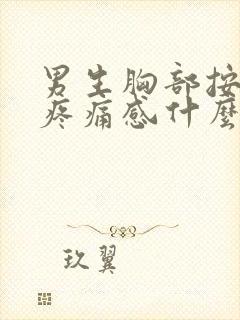 男生胸部按
疼痛感什麼
玖翼